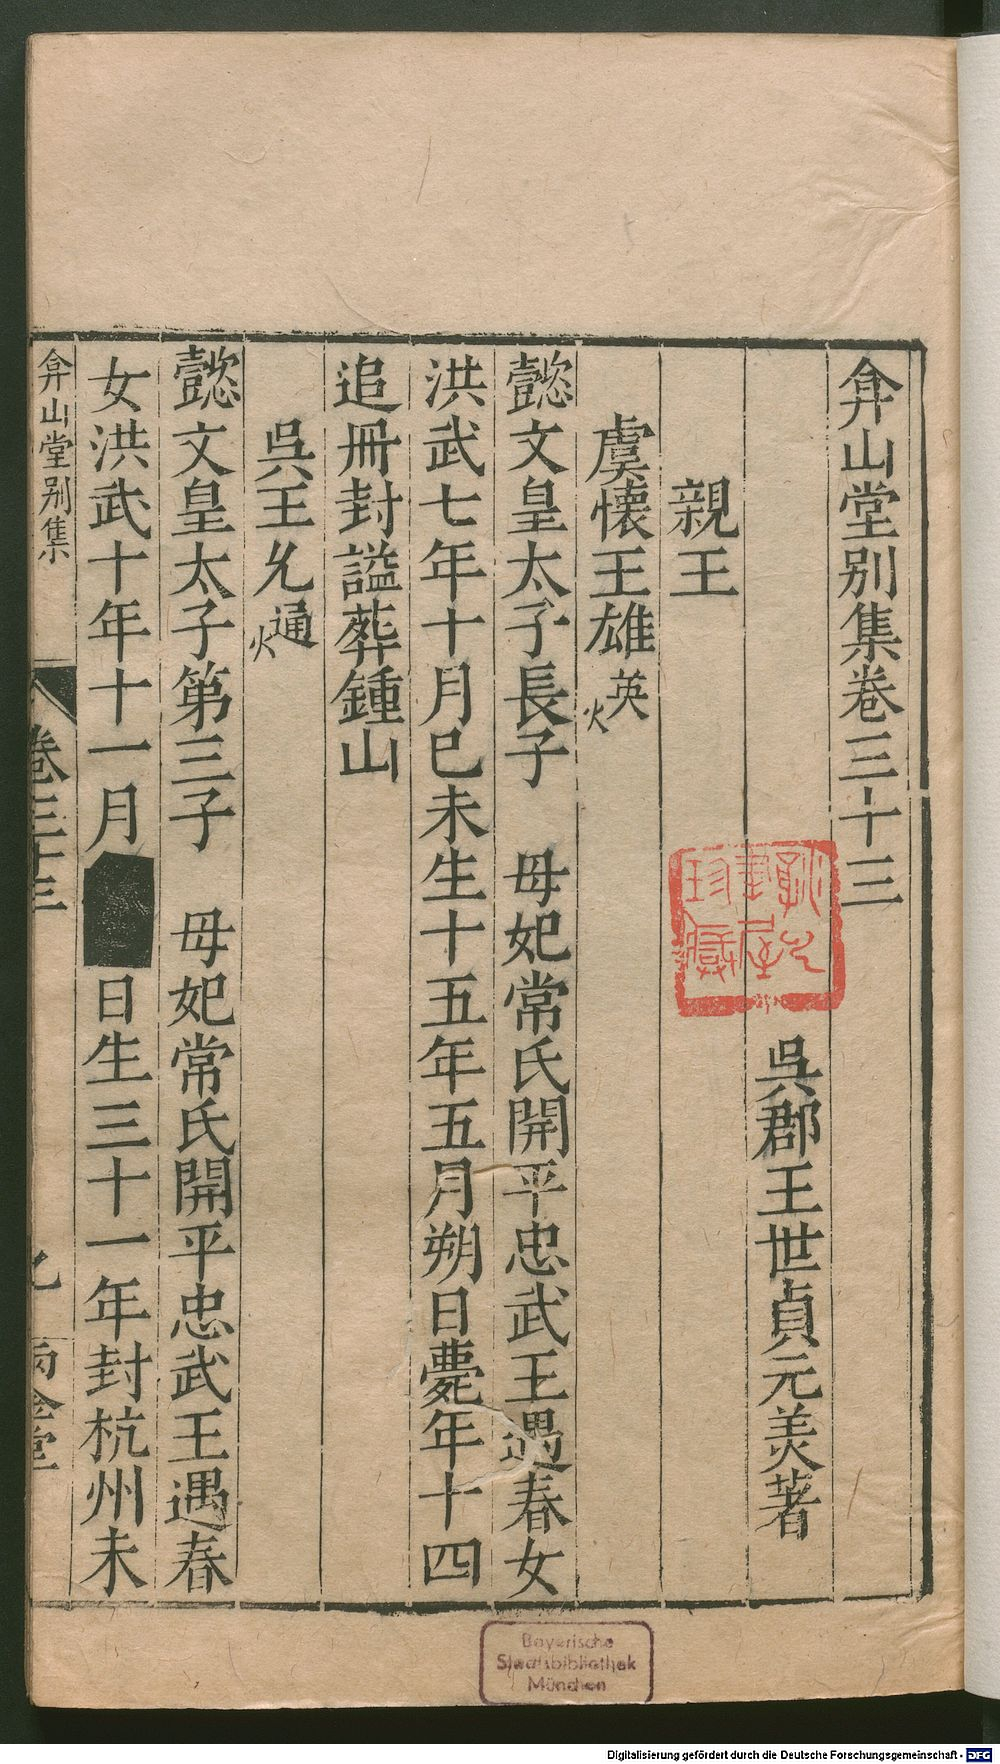 弇山堂別集卷三十三
吳郡王世貞元美著
親王
虞懷王雄英火
懿文皇太子長子　母妃常氏開平忠武王遇春女
洪武七年十月巳未生十五年五月朔日薨年十四
追冊封謚葬鍾山
吳王允通火
懿文皇太子第三子　母妃常氏開平忠武王遇春
女洪武十年十一月
日生三十一年封杭州未
弇山堂別集
卷三十三
珍藏
Bayerische
Staatsbibliothek
München
Digitalisierung gefördert durch die Deutsche Forschungsgemeinschaft - DFG